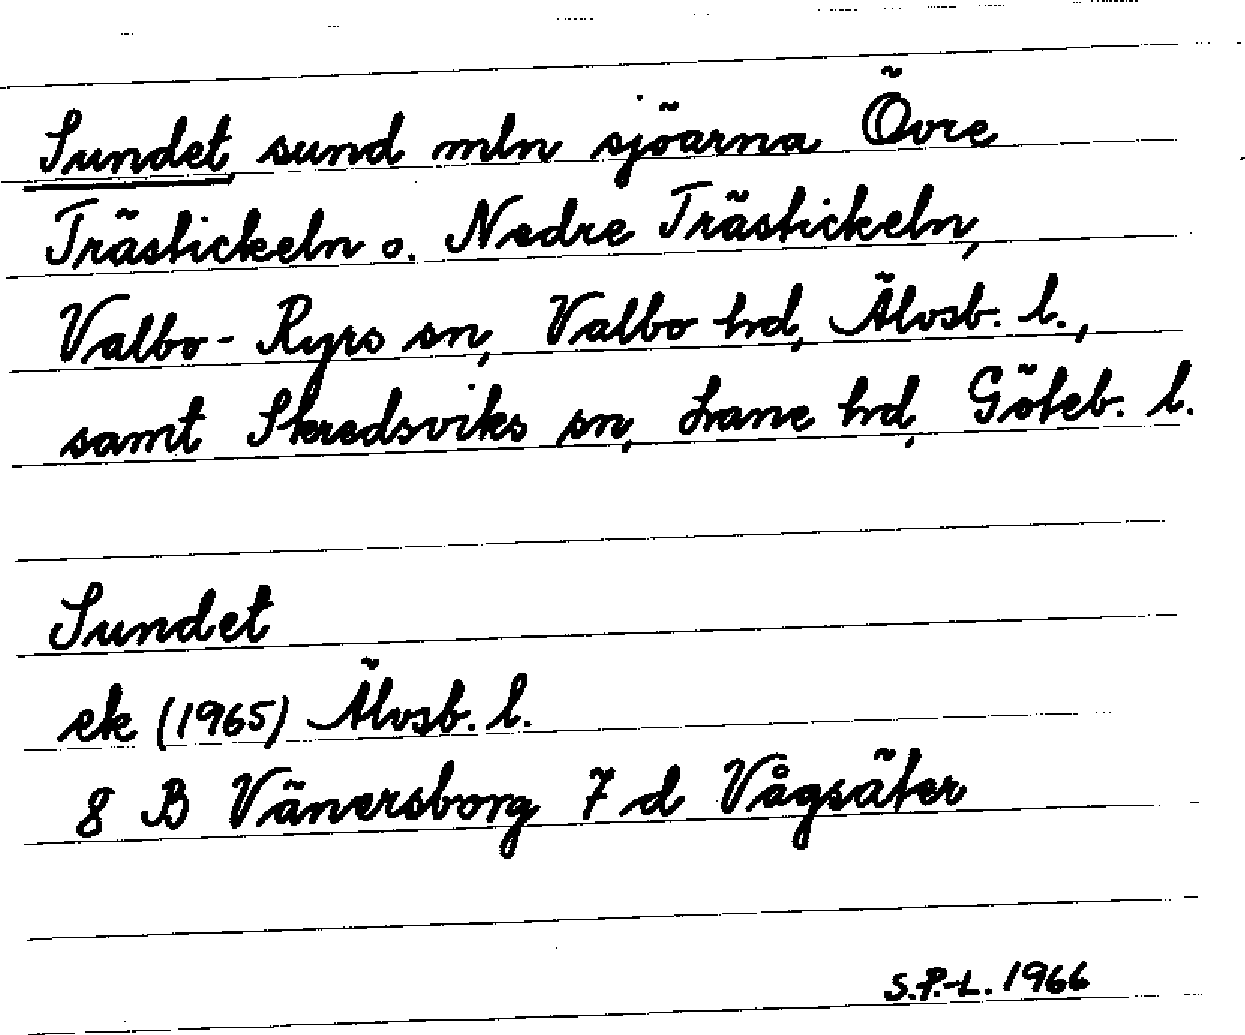 Sundet sund mln sjöarna Övre
Trästickeln o. Nedre Trästickeln,
Valbo-Ryrs sn, Valbo hd, Älvsb. l.,
samt Skredsviks sn, Lane hd, Göteb. l.
Sundet
ek (1965) Älvsb. l.
8 B Vänersborg 7 d Vågsäter
S.P.-L. 1966